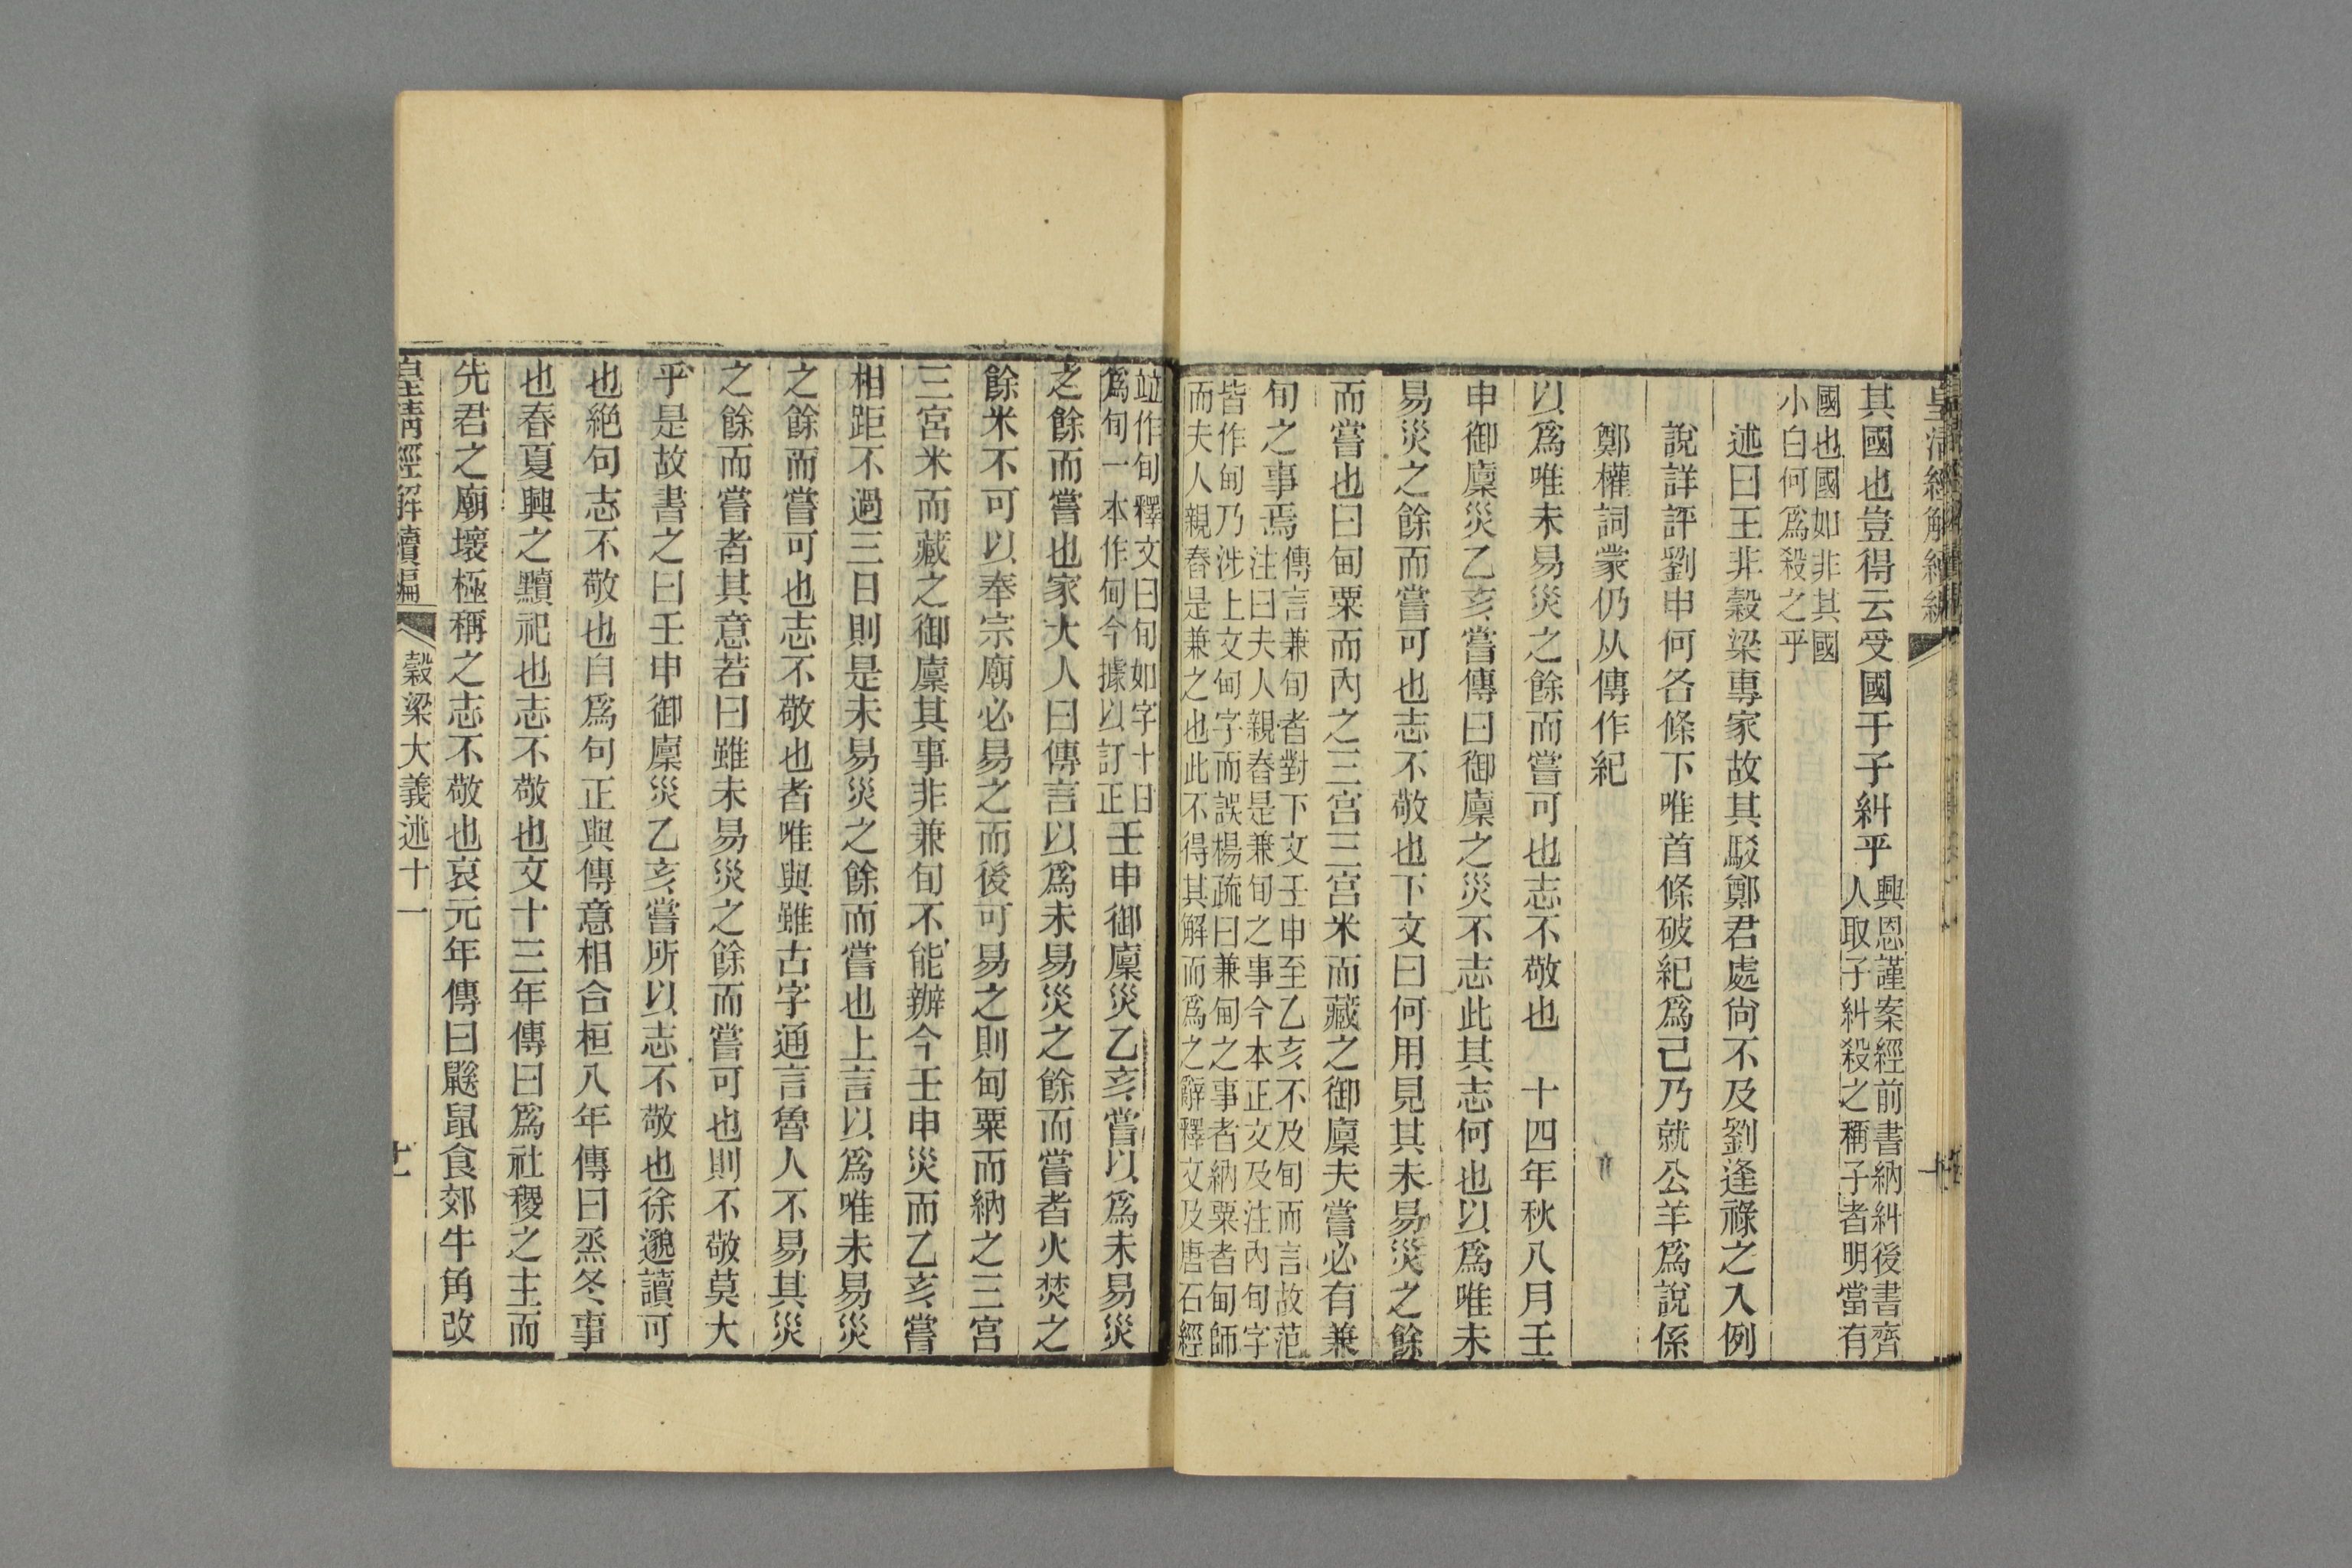 其國也豈得云受國于子糾乎興恩謹案經前書納糾後書齊人取子糾殺之稱子者明當有
國也國如非其國小白何爲殺之乎
述曰王非穀梁專家故其駁鄭君處尙不及劉逢祿之入例
說詳評劉申何各條下唯首條破紀爲己乃就公羊爲說係
鄭權詞蒙仍从傳作紀
以爲唯未易災之餘而嘗可也志不敬也　十四年秋八月壬
申御廩災乙亥嘗傳曰御廩之災不志此其志何也以爲唯未
易災之餘而嘗可也志不敬也下文曰何用見其未易災之餘
而嘗也曰甸粟而內之三宮三宮米而藏之御廩夫嘗必有兼
旬之事焉傳言兼旬者對下文壬申至乙亥不及旬而言故范注曰夫人親舂是兼旬之事今本正文及注內旬字
皆作甸乃涉上文甸字而誤楊疏曰兼甸之事者納粟者甸師而夫人親舂是兼之也此不得其解而爲之辭釋文及唐石經
竝作旬釋文曰旬如字十日爲旬一本作甸今據以訂正壬申御廩災乙亥嘗以爲未易災
之餘而嘗也家大人曰傳言以爲未易災之餘而嘗者火焚之
餘米不可以奉宗廟必易之而後可易之則甸粟而納之三宮
三宮米而藏之御廩其事非兼旬不能辦今壬申災而乙亥嘗
相距不過三日則是未易災之餘而嘗也上言以爲唯未易災
之餘而嘗可也志不敬也者唯與雖古字通言魯人不易其災
之餘而嘗者其意若曰雖未易災之餘而嘗可也則不敬莫大
乎是故書之曰壬申御廩災乙亥嘗所以志不敬也徐邈讀可
也絕句志不敬也自爲句正與傳意相合桓八年傳曰烝冬事
也春夏興之黷祀也志不敬也文十三年傳曰爲社稷之主而
先君之廟壞極稱之志不敬也哀元年傳曰鼷鼠食郊牛角改
皇淸經解續編　穀梁大義述十一